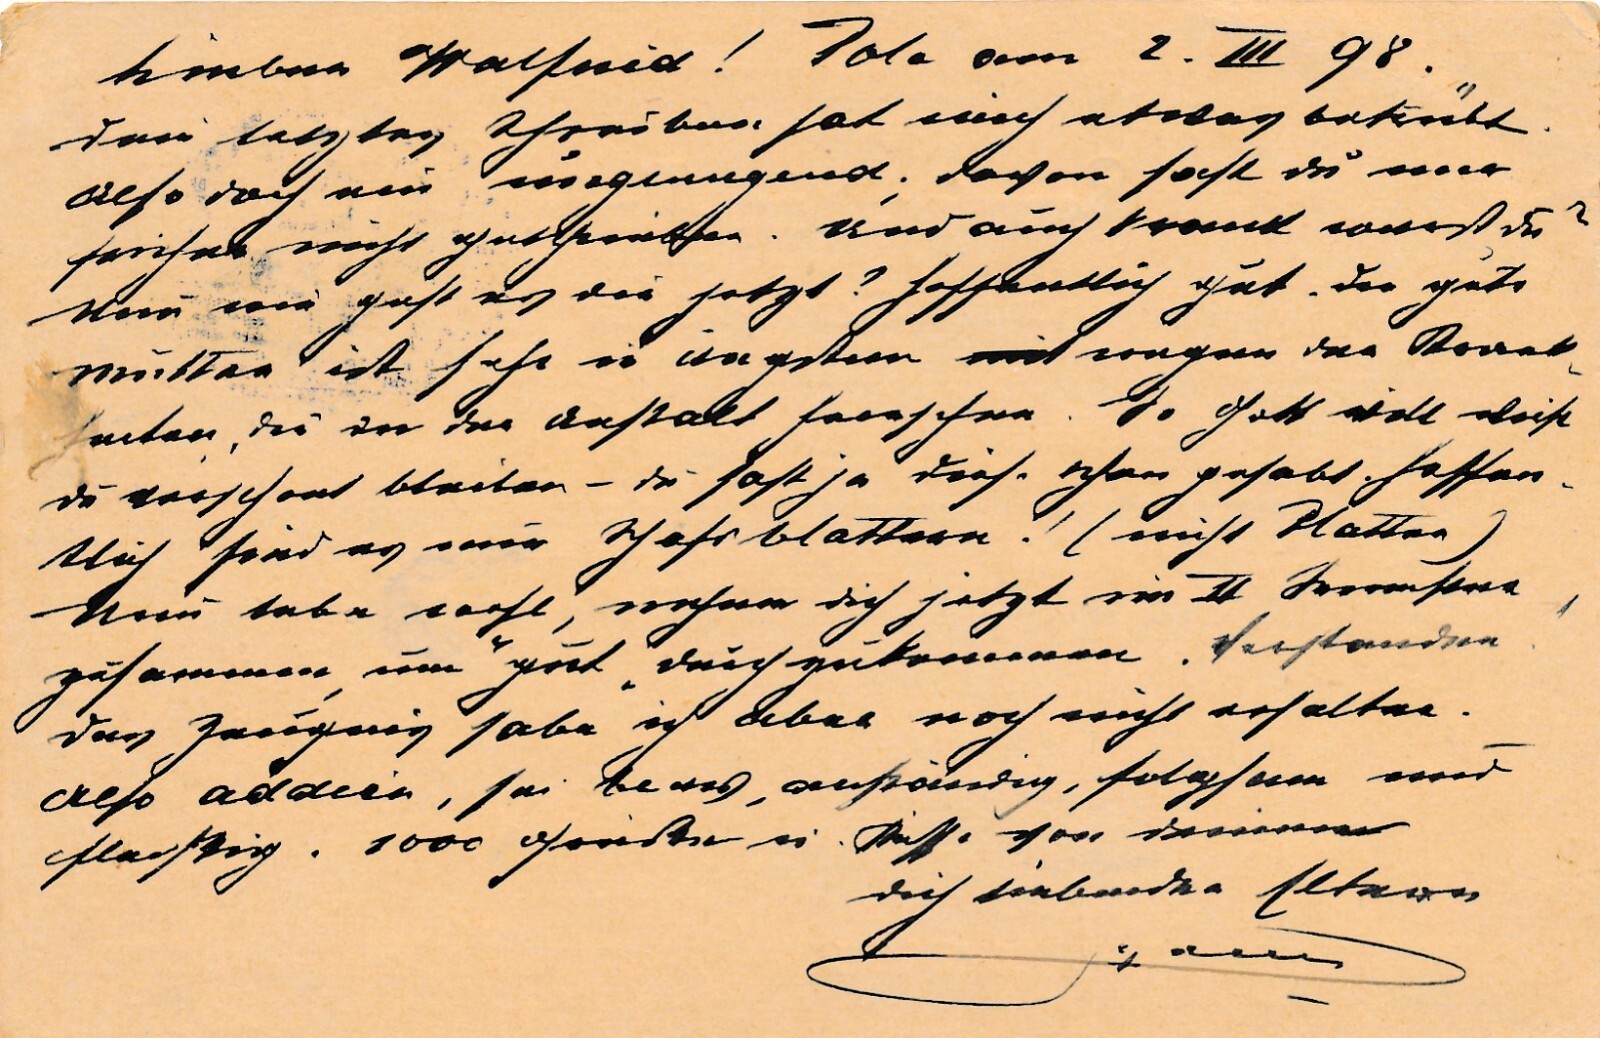 Lieber Walfried! Pola am 2. III 98.
Dein letztes Schreiben hat mich etwas betrübt.
Also doch ein ungenügend; davon hast du mir
früher nicht geschrieben. Und auch krank warst du?
Nun wie geht es dir jetzt? Hoffentlich gut. Die gute
Mutter ist sehr in Ängsten wegen der Krank-
heiten, die in der Anstalt herrschen. So Gott will wirst
du verschont bleiben – du hast ja diese schon gehabt. Hoffen-
tlich sind es nur Schafsblattern! (nicht Blattern)
Nun lebe wohl, nehme dich jetzt im II Semester
zusammen, um "gut" durchzukommen. Verstanden!
Das Zeugnis habe ich aber noch nicht erhalten.
Also addein, sei brav, anständig, folgsam und
fleißig. 1000 Grüße u. Küsse von deinen
dich liebenden Eltern